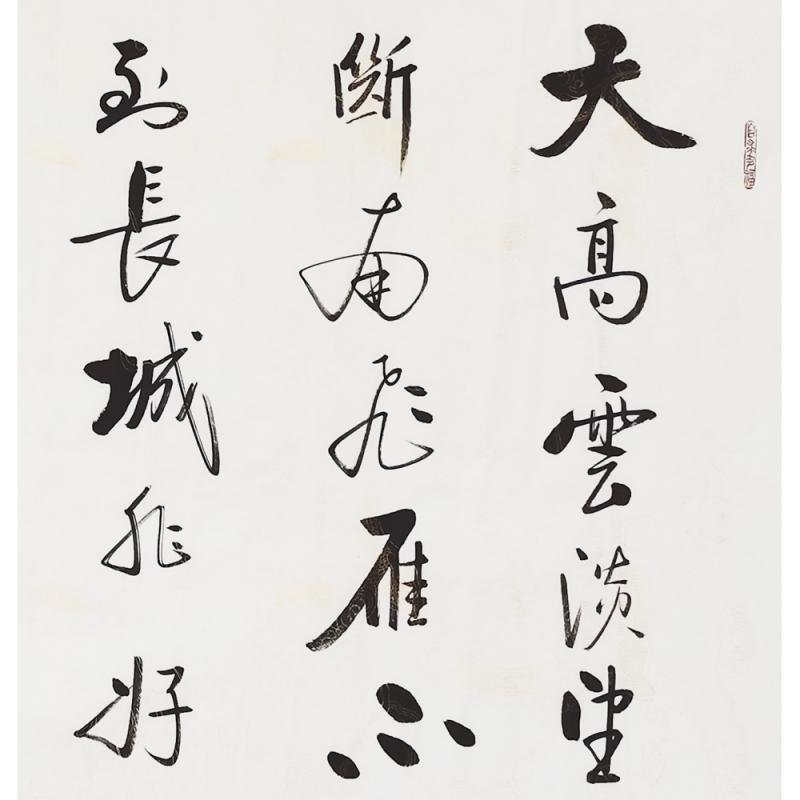 天高雲淡望
斷南飛雁不
到長城非好